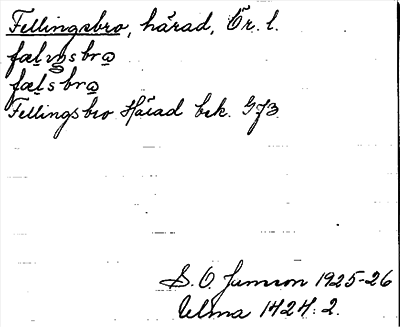 Fellingsbro, härad, Ör. l.
fælıŋsbrω
fælsbrω
Fellingsbro Härad bek. G73
S. O. Jansson 1925-26
Ulma 1424:2.